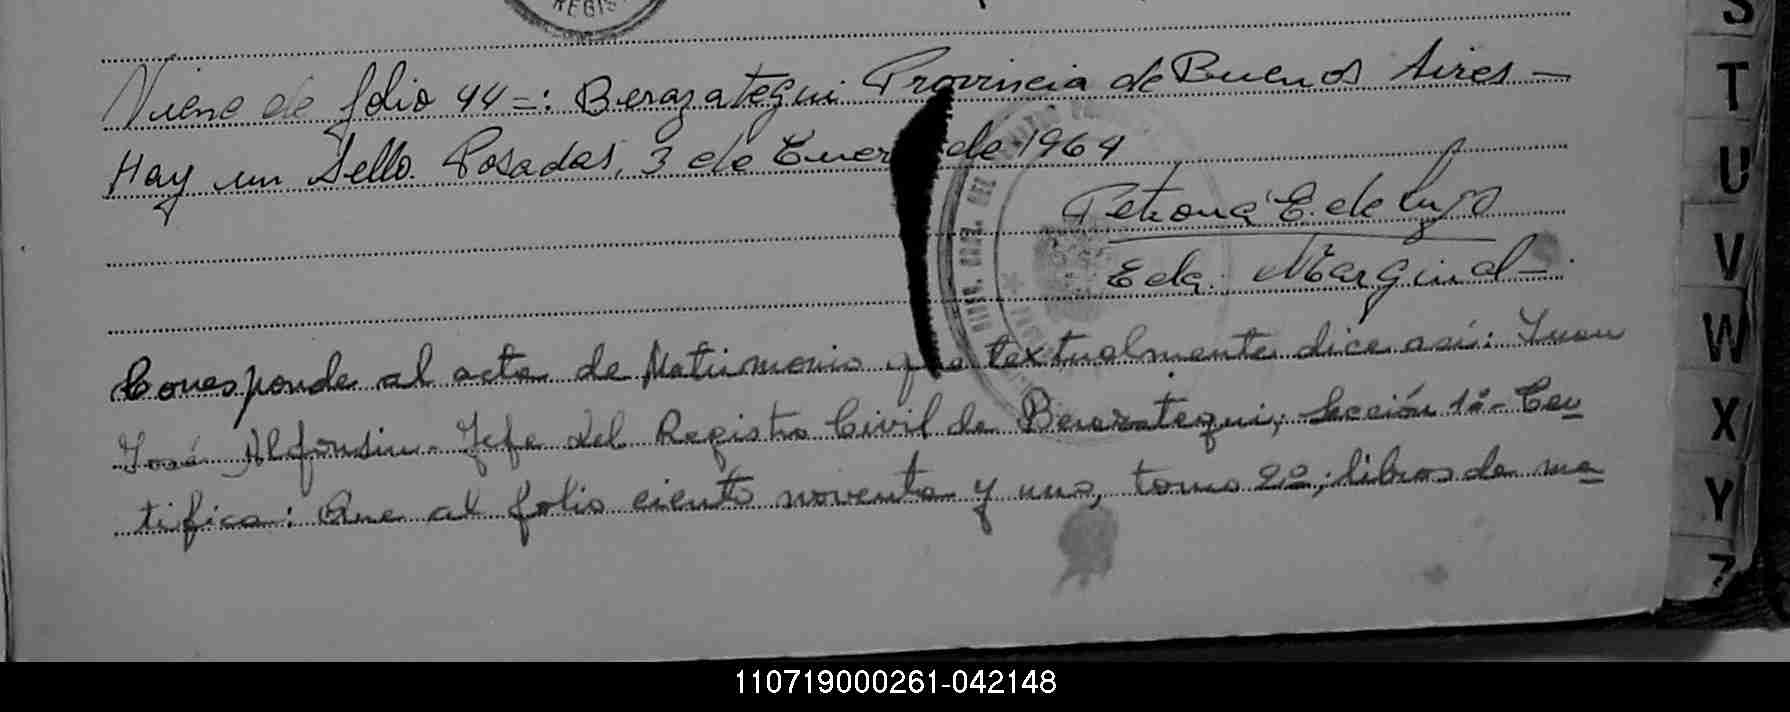 REGIS
Viene de folio 44=: Berazategui Provincia de Buenos Aires—
Hay un Sello. Posadas, 3 de Enero de 1964
Petrona E. de Lugo
Eda. Marginal—
Corresponde al acta de Matrimonio que textualmente dice así: Juan
José Alfonsin- Jefe del Registro Civil de Berazategui, Sección 1º- Cer
tifica: Que al folio ciento noventa y uno, tomo 2º; libros de ma
S
T
U
V
W
X
Y
Z
110719000261-042148